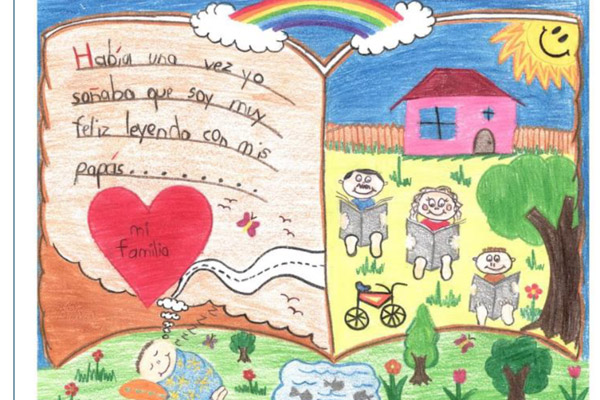 Había una vez yo
soñaba que soy muy
feliz leyendo con mis
papás.........
mi
familia
zzzzzzz